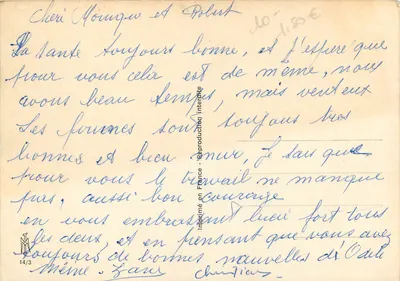 Cheré Monique et Robert
10-
1,50€
La santé toujours bonne, et j'espère que
pour vous cela est de même, nous
avons beau temps, mais venteux
Les pommes sont toujours tres
bonnes et bien mur, je sais que
pour vous le travail ne manque
pas, aussi bon courage
en vous embrassant bien fort tous
les deux, et en pensant que vous avez
toujours de bonnes nouvelles d'Odile
même.
Christian
Imprimé en France - Reproduction interdite
14/3